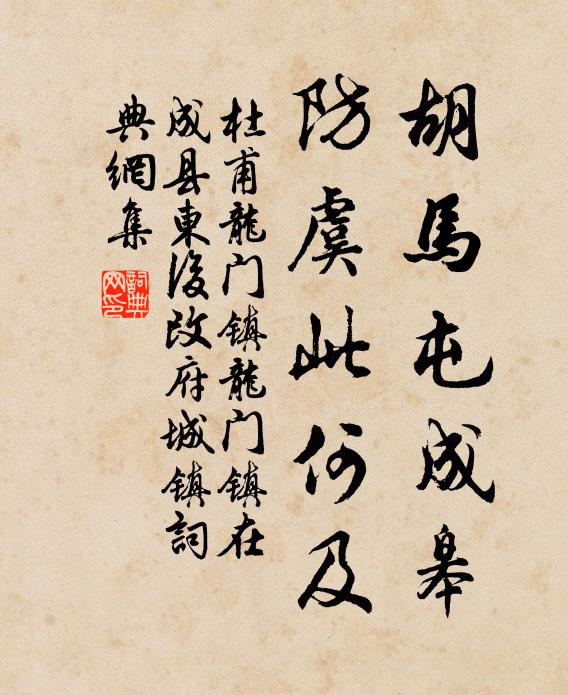 胡馬屯成皋
防虞此何及
杜甫龍门镇龍门镇在
成县東後改府城镇詞
典網集
詞典
网印